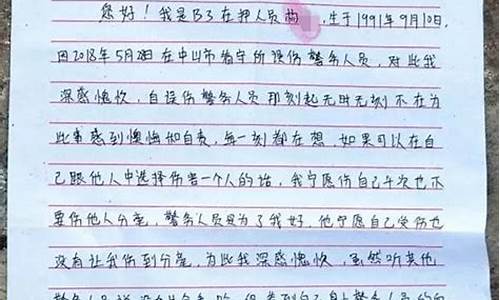 您好！我是B3在押人员 ，生于1991年9月10日，
因2018年5月28日在中山市看守所误伤警务人员，对此我
深感愧疚，自误伤警务人员那刻起无时无刻不在为
此事感到懊悔和自责，每一刻都在想，如果可以在自
己跟他人中选择伤害一个人的话，我宁愿伤自己千次也不
要伤他人分毫，警务人员是为了我好，他宁愿自己受伤也
没有让我伤到分毫，为此我深感愧疚，虽然听其他
警务人员说没有什么